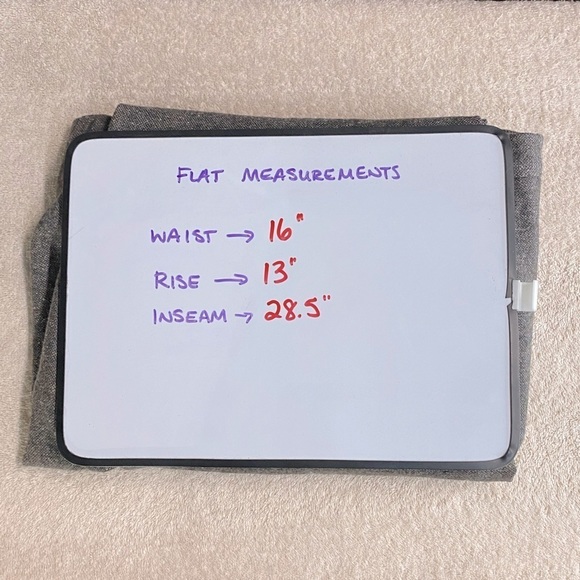 FLAT MEASUREMENTS
WAIST → 16"
RISE → 13"
INSEAM → 28.5"